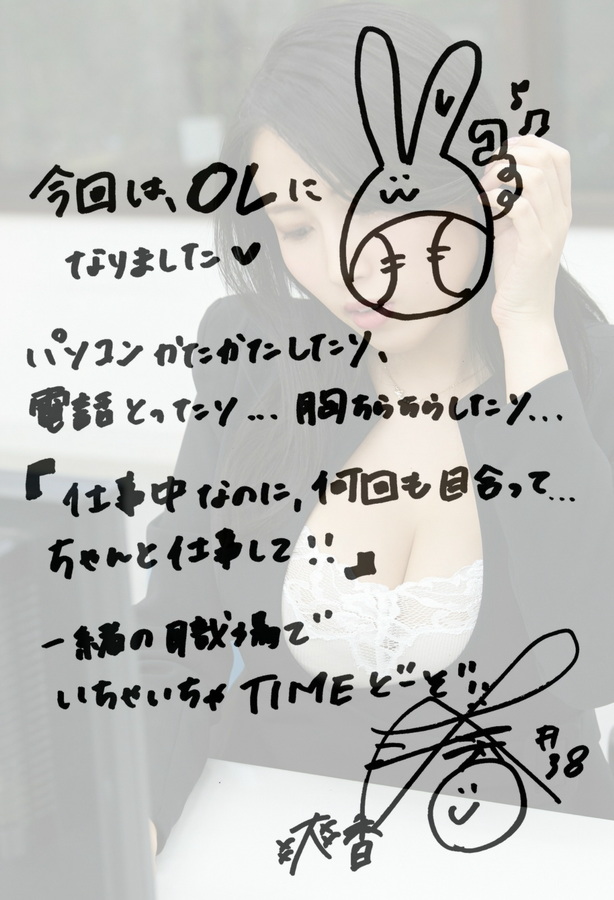 今回は、OLに
なりました♥
パソコンかたかたしたり、
電話とったり... 胸ちらちらしたり...
『仕事中なのに、何回も目合って...
ちゃんと仕事して!!』
一緒の職場で
いちゃいちゃTIMEどーぞ!!
#38